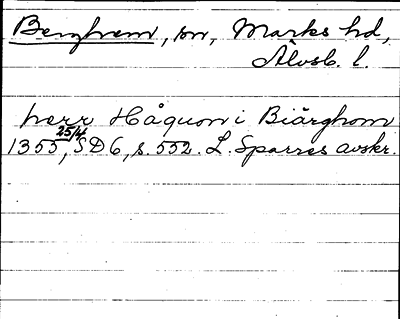 Berghem, sn, Marks hd,
Älvsb. l.
herr Håquon i Biärghom
1355 25/4, SD 6, s. 552. L. Sparres avskr.